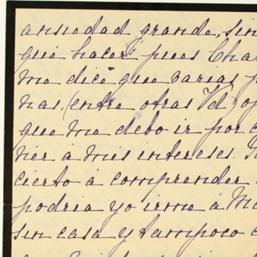 ansiedad grande, sin
que hacer pues Cha
me dice que varias p
nas (entre otras Vd) op
que me debo ir por c
nir á mis intereses.
cierto a comprender
podria yo irme á M
sin casa y tampoco